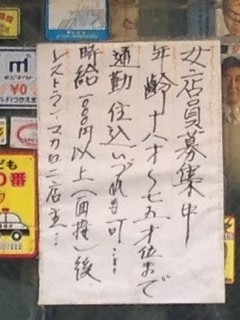 女店員募集中
年齢十八才〜七五才位まで
通勤住込いづれも可…
時給1000円以上(面接)後
レストランマカロニ店主…
も
0番
m
¥0